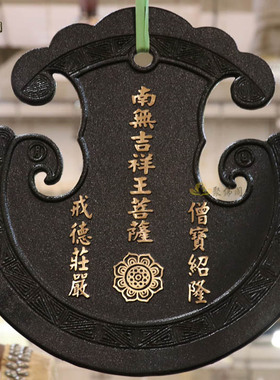 南無吉祥王菩薩
僧寶紹隆
戒德莊嚴